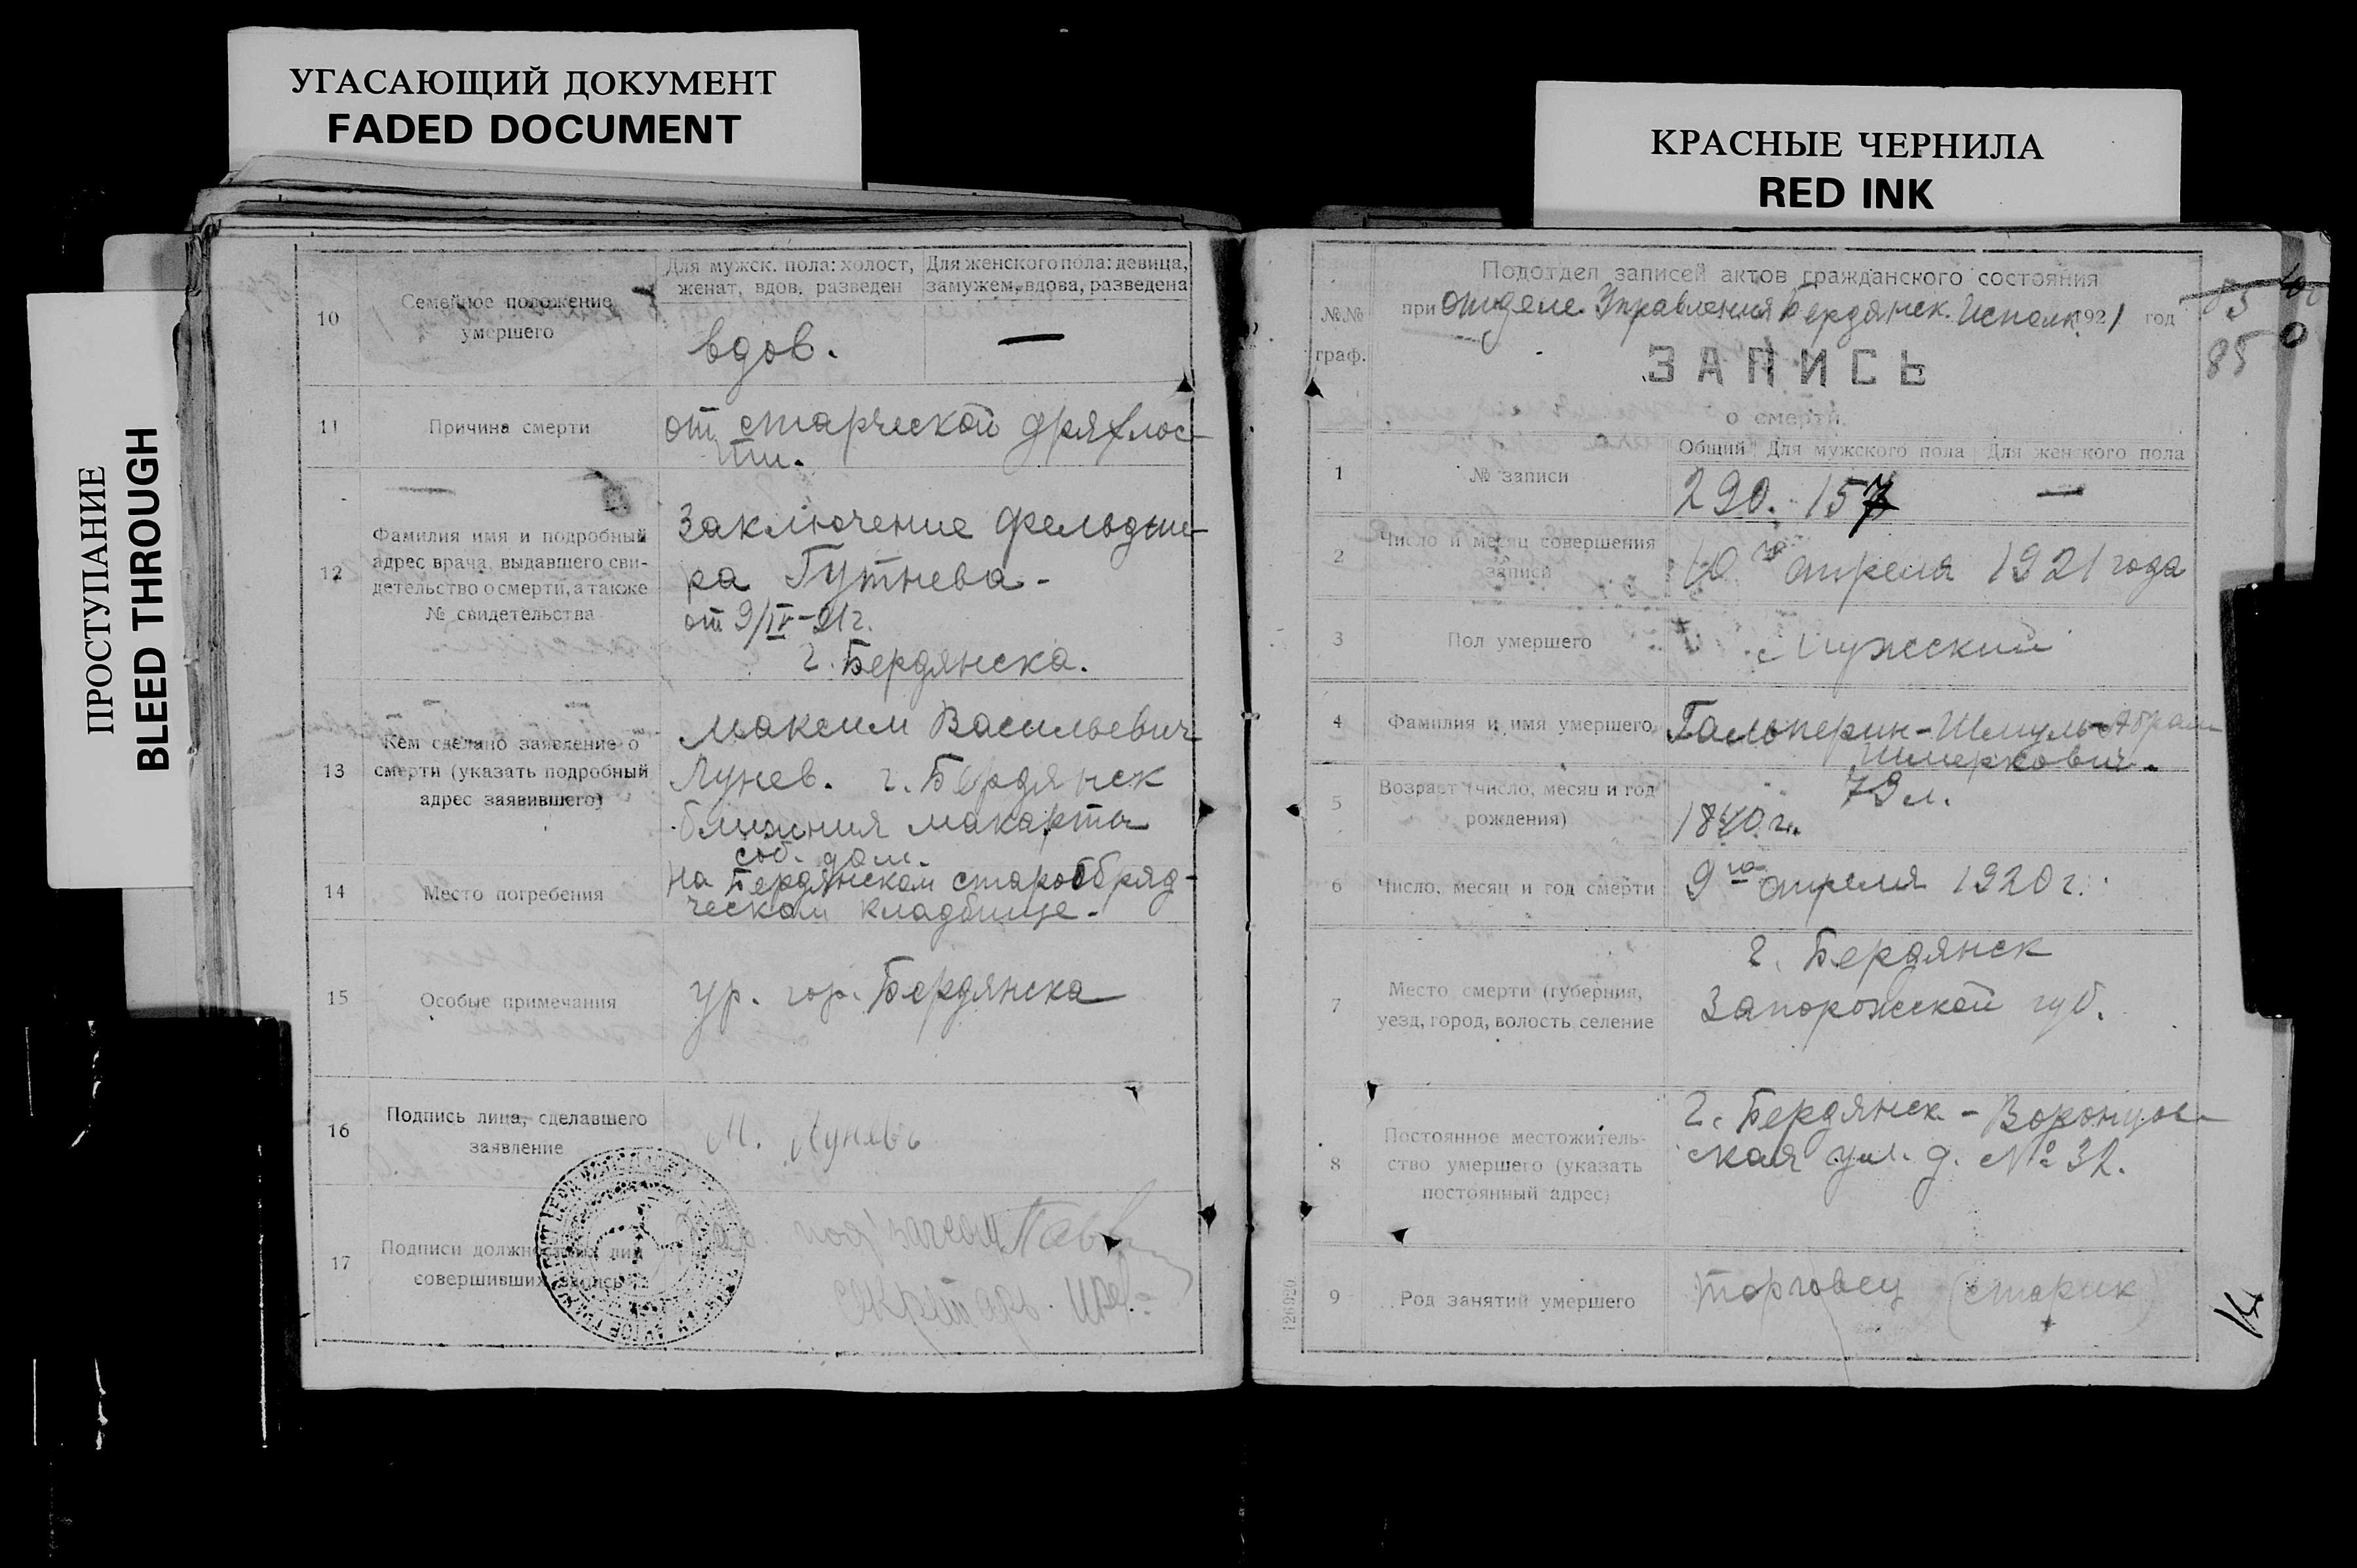 УГАСАЮЩИЙ ДОКУМЕНТ
FADED DOCUMENT
КРАСНЫЕ ЧЕРНИЛА
RED INK
ПРОСТУПАНИЕ
BLEED THROUGH
10
Семейное положение
умершего
Для мужск. пола: холост,
женат, вдов, разведен
Для женского пола: девица,
замужем, вдова, разведена
вдов.
—
11
Причина смерти
от старческой дряхлос-
ти.
12
Фамилия имя и подробный
адрес врача, выдавшего сви-
детельство о смерти, а также
№ свидетельства
Заключение фельдше-
ра Гутнева-
от 9/IV-21г.
г. Бердянска.
13
Кем сделано заявление о
смерти (указать подробный
адрес заявившего)
Максим Васильевич
Лунев. г. Бердянск
макорты
соб. дом.
14
Место погребения
на Бердянском старообряд-
ческом кладбище-
15
Особые примечания
ур. гор. Бердянска
16
Подпись лица, сделавшего
заявление
М. Луневъ
17
Подписи должностных лиц
совершивших запись
секретарь.
№№
граф.
Подотдел записей актов гражданского состояния
при отделе Управления Бердянск. Исполк. 1921 год
83
85
ЗАПИСЬ
о смерти.
1
№ записи
Общий Для мужского пола Для женского пола
290. 157 —
2
Число и месяц совершения
записи
10го апреля 1921 года
3
Пол умершего
Мужский
4
Фамилия и имя умершего
Гальперин-Шмуль-Абрам
Шмеркович.
5
Возраст (число, месяц и год
рождения)
79 л.
1840 г.
6
Число, месяц и год смерти
9го апреля 1920 г.
7
Место смерти (губерния,
уезд, город, волость, селение
г. Бердянск
Запорожской губ.
8
Постоянное местожитель-
ство умершего (указать
постоянный адрес)
г. Бердянск - Воронцов-
ская ул. д. № 32.
9
Род занятий умершего
торговец (старик)
126920